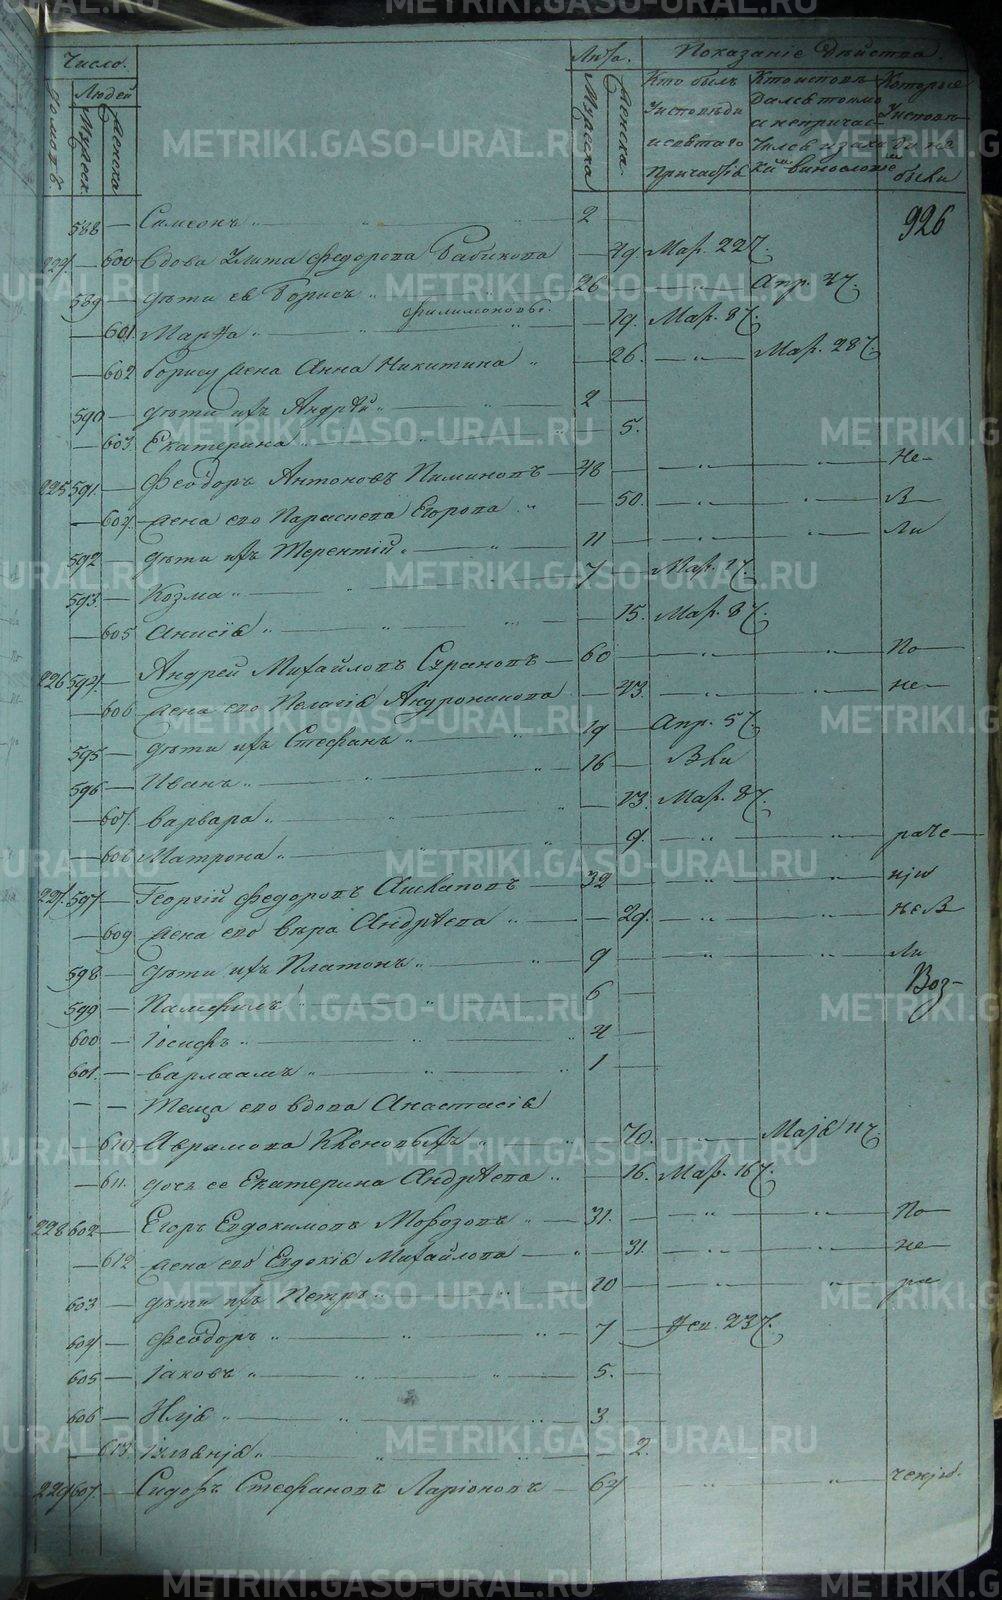 Число.
Людей
Домовъ.
Мужеск.
Женска
Лѣта.
Мужска
Женска.
Показаніе дѣйства.
Кто былъ
У исповѣди
и святаго
Причастія
Кто исповѣ
дался токмо
а не причас
тился и за ка
кимъ винословіе
Которые
У исповѣ
ди не
были
926
588 — Симеонъ „ „ „ 2 —
— 600 Вдова Улита Федорова Бабикова — 49. Мар. 22
589 — Дѣти ея Борисъ „ 26 — „ Апр. 4
Филимоновы.
— 601. Марѳа „ „ — 19. Мар. 8
— 602 Борису жена Анна Никитина „ — 26. — „ Мар. 28
590 — Дѣти ихъ Андрѣй „ „ 2 —
— 603 Екатерина „ „ — 5.
225 591. — Феодоръ Антоновъ Пиминовъ — 48 — „ „ Не-
— 604. жена его Параскева Егорова „ — 50. — „ „ В
592 — Дѣти ихъ Терентій „ „ 11 — „ „ Ли
593 — Козма „ „ 7 — Мар. 1
— 605 Анисія „ „ „ — 15. Мар. 8
226 594. — Андрей Михайловъ — 60 — „ „ По
— 606 жена его Пелагія Андроникова — 43. — „ „ не-
595 — Дѣти ихъ Стефанъ „ „ 19 — Апр. 5
596 — Иванъ „ „ „ 16 —
— 607. Варвара „ „ „ — 13. Мар. 8
— 608 Матрона „ „ — 9. — „ „ раче
227. 597 — Георгій Федоровъ — 32 — „ „ нію
— 609 жена его Вѣра Андрѣева „ — 29. — „ „
598 — Дѣти ихъ Платонъ „ „ 9 — „ „ Ли
599 — Памфилъ „ „ 6 — Воз-
600 — Іосифъ „ „ „ 4 —
601. — Варлаамъ „ „ „ 1 —
— — Теща его вдова Анастасія
610 Аврамова „ „ — 70. „ Маія 11
— 611. дочь ее Екатерина Андрѣева „ — 16. Мар. 16
228 602 — Егоръ Евдокимовъ Морозовъ „ — 31. — „ „ По
— 612 жена его Евдокія Михайлова — „ — 31. — „ „ не
603 — Дѣти ихъ Петръ „ „ 10 — „ „ ра
604 — Феодоръ „ „ „ 7 — 23
605 — Іаковъ „ „ „ 5. —
606 — Илія „ „ „ 3 —
— 613. „ „ „ — 2.
229 607. — Сидоръ Стефановъ Ларіоновъ — 64 — „ „ ченію.
METRIKI.GASO-URAL.RU